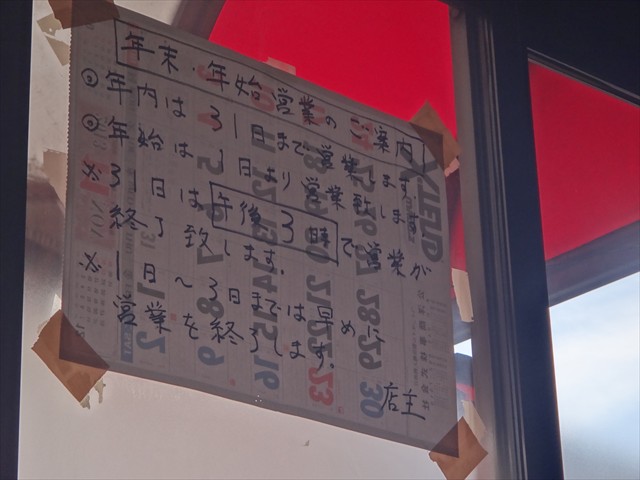 年末・年始営業のご案内
◎年内は31日まで営業します。
◎年始は1日より営業致します。
※31日は午後3時で営業が
終了致します。
※1日〜3日までは早めに
営業を終了します。
店主